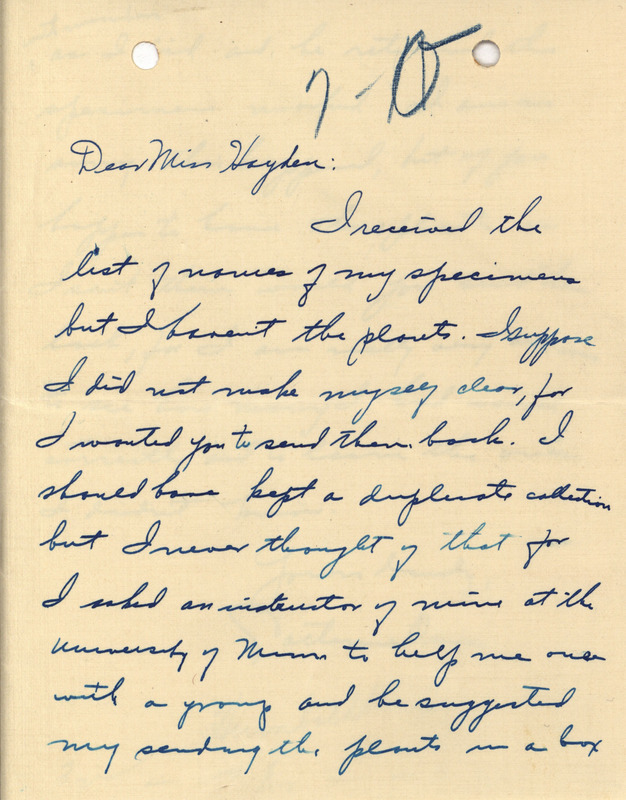 Dear Miss Hayden:
I received the
list of names of my specimens
but I havent the plants. I suppose
I did not make myself clear, for
I wanted you to send them back. I
should have kept a duplicate collection
but I never thought of that for
I asked an instructor of mine at the
University of Minn to help me once
with a group and he suggested
my sending the plants in a box